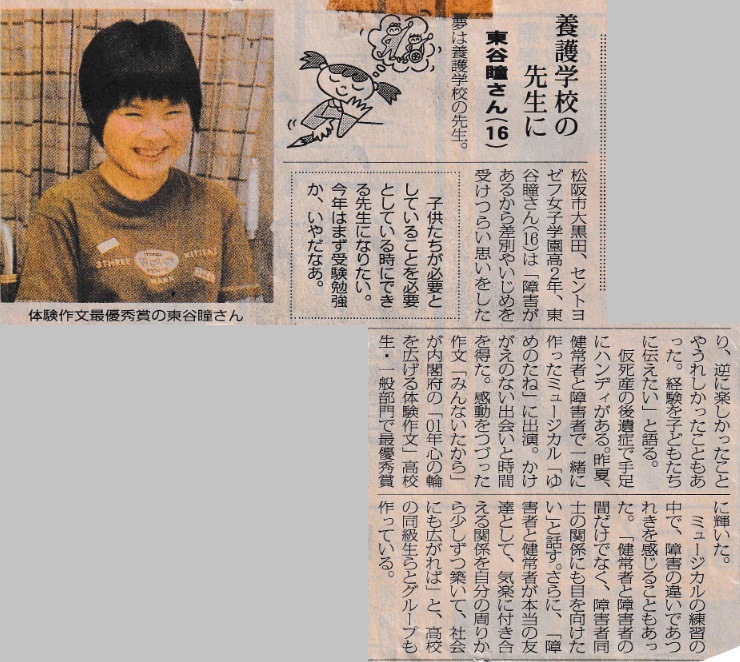 養護学校の
先生に
東谷瞳さん(16)
夢は養護学校の先生。
松阪市大黒田、セントヨ
ゼフ女子学園高2年、東
谷瞳さん(16)は「障害が
あるから差別やいじめを
受けつらい思いをした
り、逆に楽しかったこと
やうれしかったこともあ
った。経験を子どもたち
に伝えたい」と語る。
仮死産の後遺症で手足
にハンディがある。昨夏、
健常者と障害者で一緒に
作ったミュージカル「ゆ
めのたね」に出演。かけ
がえのない出会いと時間
を得た。感動をつづった
作文「みんないたから」
が内閣府の「01年心の輪
を広げる体験作文」高校
生・一般部門で最優秀賞
に輝いた。
ミュージカルの練習の
中で、障害の違いであつ
れきを感じることもあっ
た。「健常者と障害者の
間だけでなく、障害者同
士の関係にも目を向けた
い」と話す。さらに、「障
害者と健常者が本当の友
達として、気楽に付き合
える関係を自分の周りか
ら少しずつ築いて、社会
にも広がれば」と、高校
の同級生らとグループも
作っている。
子供たちが必要と
していることを必要
としている時にでき
る先生になりたい。
今年はまず受験勉強
か、いやだなあ。
体験作文最優秀賞の東谷瞳さん